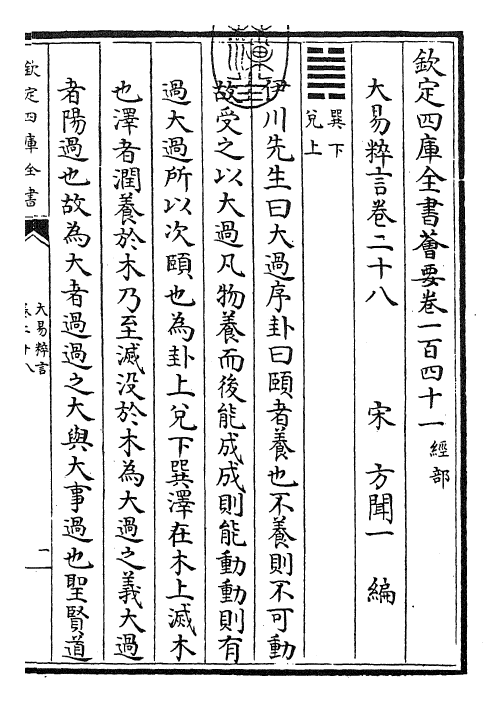 欽定四庫全書薈要卷一百四十一 經部
大易粹言卷二十八 宋 方聞一 編
巽下
兌上
伊川先生曰大過序卦曰頤者養也不養則不可動
故受之以大過凡物養而後能成成則能動動則有
過大過所以次頤也為卦上兌下巽澤在木上滅木
也澤者潤養於木乃至滅没於木為大過之義大過
者陽過也故為大者過過之大與大事過也聖賢道
欽定四庫全書
大易粹言
卷二十八
一